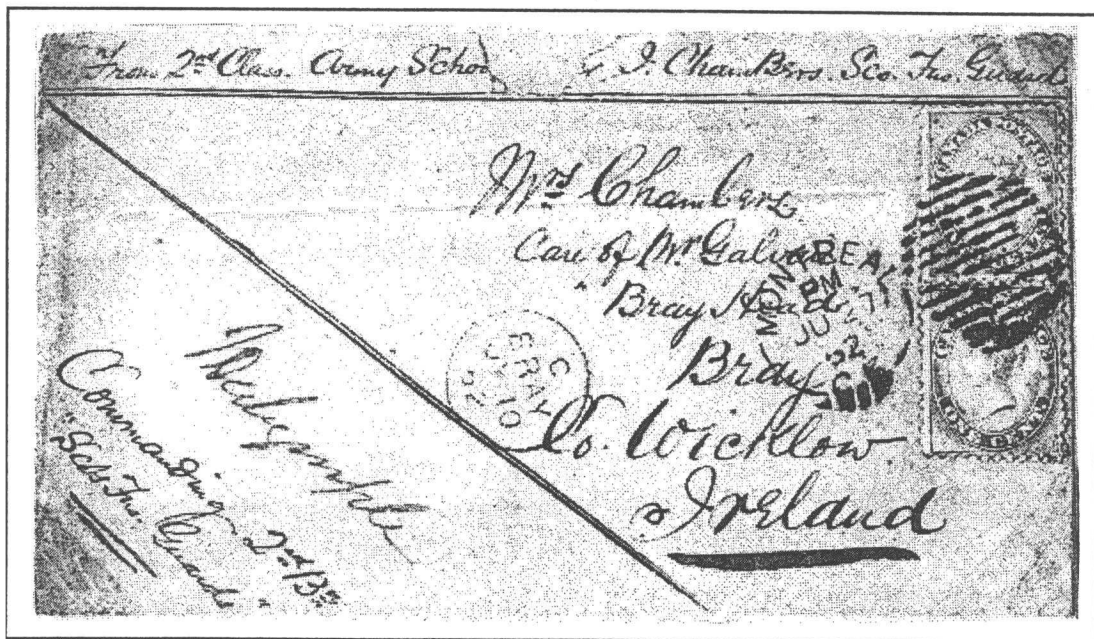 From 2nd Class. Army Schoo J. Chambers. Sco. Fus. Guard
Mrs Chambers
Care of Mr
Bray Head
Bray
Co. Wicklow
Ireland
MONTREAL
PM
JU 27
62
C
BRAY
JY 10
62
Commanding 2nd Bn
"Scts Fus. Guards"